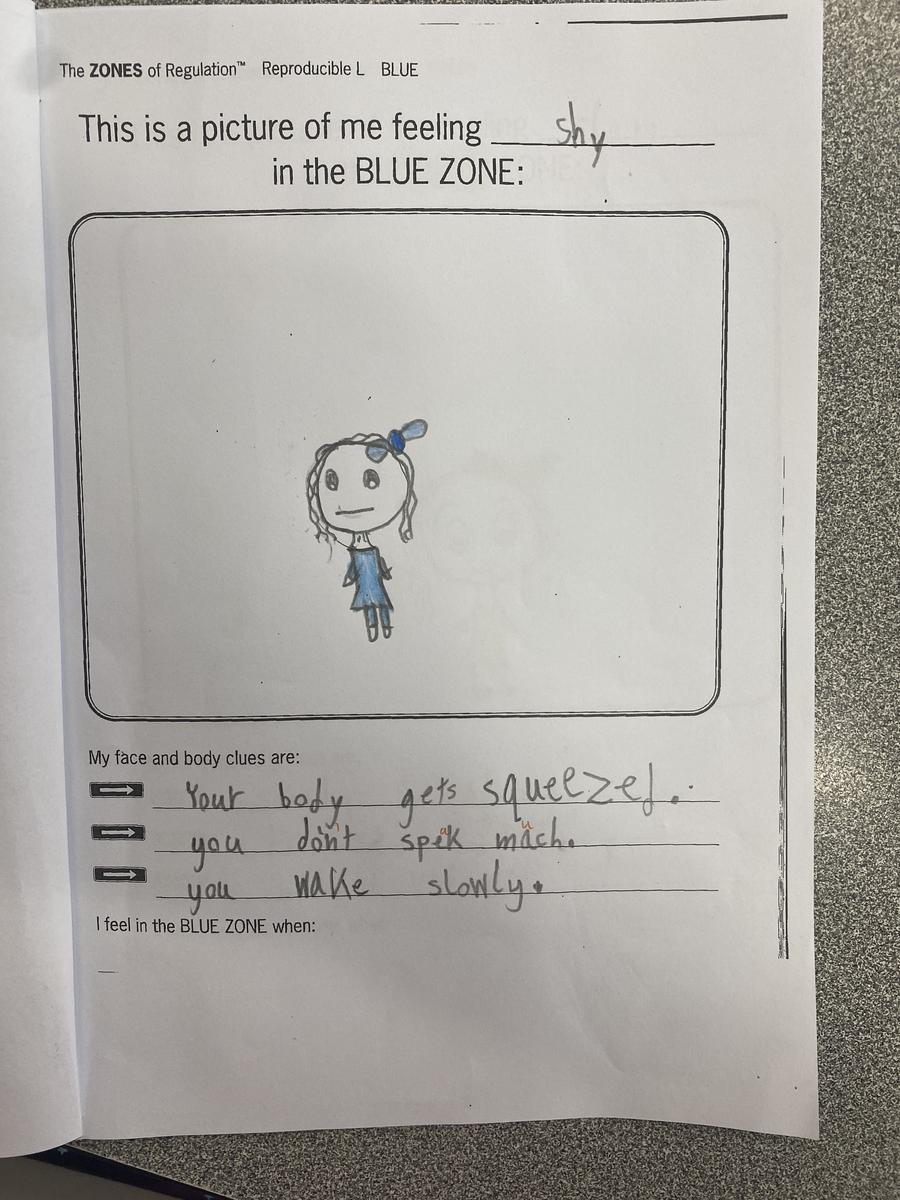 The ZONES of Regulation™ Reproducible L BLUE
This is a picture of me feeling shy
in the BLUE ZONE:
My face and body clues are:
Your body gets squeezed.
you don't speak much.
you wake slowly.
I feel in the BLUE ZONE when: